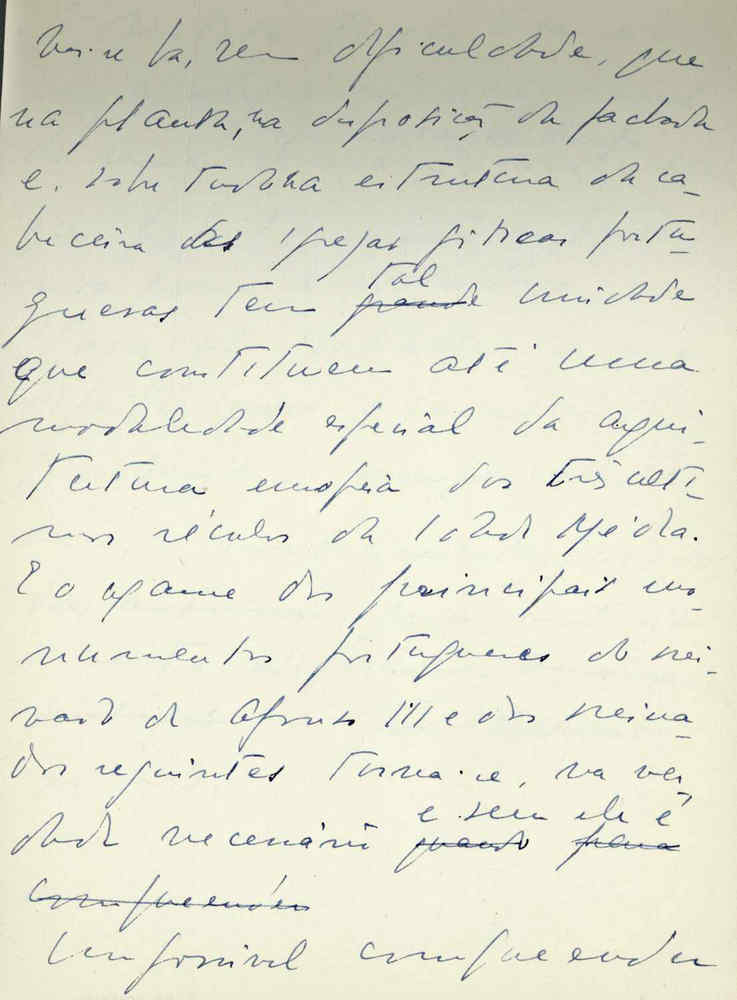 sem dificuldade, que
na planta, na disposição da fachada
e, sobretudo na estrutura da ca-
beceira das igrejas góticas portu-
guesas tem tal grande unidade
que constituem até uma
modalidade especial da arqui-
tectura europeia dos três últi-
mos séculos da Idade Média.
E o exame dos principais mo-
numentos portugueses do rei-
nado de Afonso III e dos reina-
dos seguintes torna-se, na ver-
dade necessário e sem ele é
compreender
impossível compreender